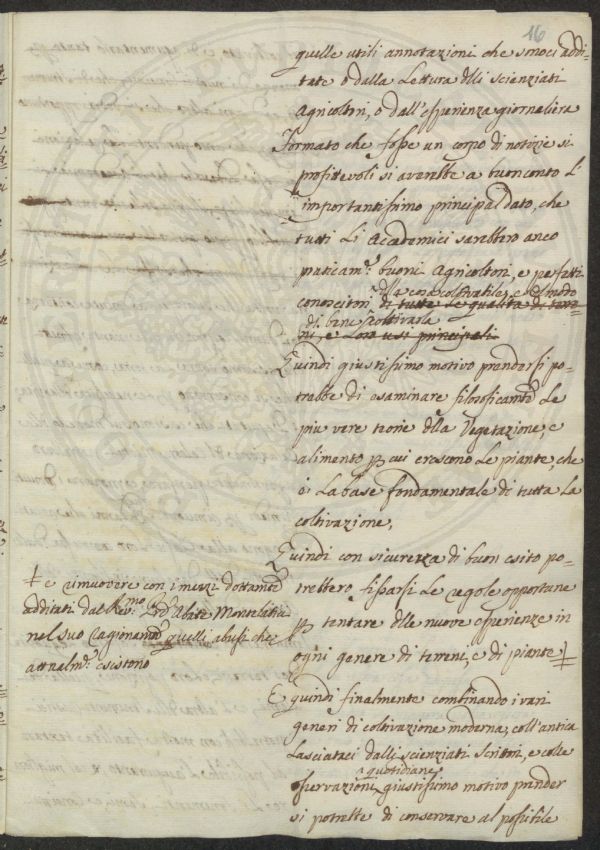 16
quelle utili annotazioni che sonoci addi-
tate o dalla Lettura dlli scienziati
Agricoltori, o dall'esperienza giornaliera
Formato che fosse un corpo di notizie si
profittevoli si averebbe a buon conto l'
importantissimo principal dato, che
tutti li Academici sarebbero anco
praticamte buoni Agricoltori, e perfetti
dlla cosa coltivabile, e dl modo
conoscitori di tutte le qualità di terre-
di bene coltivarla
ni, e loro usi principali.
Quindi giustissimo motivo prendersi po-
trebbe di esaminare filosoficamte le
piu vere teorie dlla Vegetazione, e
alimento p cui crescono le piante, che
è la base fondamentale di tutta la
coltivazione,
Quindi con sicurezza di buon esito po-
trebbero fissarsi le regole opportune
p tentare dlle nuove esperienze in
ogni genere di terreni, e di piante ‡
‡ e rimuovere con i mezzi dottamte
additati dal Revmo Abate Montelatici
nel suo ragionamto quelli abusi che
attualmte esistono
E quindi finalmente combinando i vari
generi di coltivazione moderna, coll'antica
lasciataci dalli scienziati scrittori, e colle
quotidiane
osservazioni giustissimo motivo prender
si potrebbe di conservare al possibile